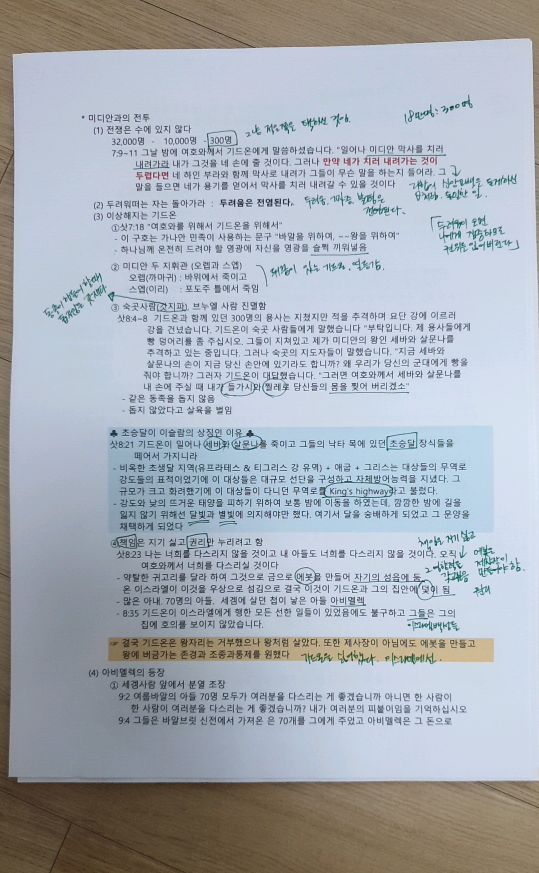 18만명 : 300명
* 미디안과의 전투
(1) 전쟁은 수에 있지 않다
32,000명 - 10,000명 - 300명
7:9~11 그날 밤에 여호와께서 기드온에게 말씀하셨습니다. "일어나 미디안 막사를 치러
내려가라 내가 그것을 네 손에 줄 것이다. 그러나 만약 네가 치러 내려가는 것이
두렵다면 네 하인 부라와 함께 막사로 내려가 그들이 무슨 말을 하는지 들어라. 그
말을 들으면 네가 용기를 얻어서 막사를 치러 내려갈 수 있을 것이다
(2) 두려워떠는 자는 돌아가라 : 두려움은 전염된다.
(3) 이상해지는 기드온
①삿7:18 "여호와를 위해서 기드온을 위해서"
- 이 구호는 가나안 민족이 사용하는 문구 "바알을 위하여, ~~왕을 위하여"
- 하나님께 온전히 드려야 할 영광에 자신을 영광을 슬쩍 끼워넣음
② 미디안 두 지휘관 (오렙과 스엡)
오렙(까마귀) : 바위에서 죽이고
스엡(이리) : 포도주 틀에서 죽임
③ 숙곳사람(갓지파), 브누엘 사람 진멸함
삿8:4~8 기드온과 함께 있던 300명의 용사는 지쳤지만 적을 추격하며 요단 강에 이르러
강을 건넜습니다. 기드온이 숙곳 사람들에게 말했습니다 "부탁입니다. 제 용사들에게
빵 덩어리를 좀 주십시오. 그들이 지쳐있고 제가 미디안의 왕인 세바와 살문나를
추격하고 있는 중입니다. 그러나 숙곳의 지도자들이 말했습니다. "지금 세바와
살문나의 손이 지금 당신 손안에 있기라도 합니까? 왜 우리가 당신의 군대에게 빵을
줘야 합니까? 그러자 기드온이 대답했습니다. "그러면 여호와께서 세바와 살문나를
내 손에 주실 때 내가 들가시와 찔레로 당신들의 몸을 찢어 버리겠소"
- 같은 동족을 돕지 않음
- 돕지 않았다고 살육을 벌임
♣ 초승달이 이슬람의 상징인 이유 ♣
삿8:21 기드온이 일어나 세바와 살문나를 죽이고 그들의 낙타 목에 있던 초승달 장식들을
떼어서 가지니라
- 비옥한 초생달 지역(유프라테스 & 티그리스 강 유역) + 애굽 + 그리스는 대상들의 무역로
강도들의 표적이었기에 이 대상들은 대규모 선단을 구성하고 자체방어능력을 지녔다. 그
규모가 크고 화려했기에 이 대상들이 다니던 무역로를 King's highway라고 불렀다.
- 강도와 낮의 뜨거운 태양을 피하기 위하여 보통 밤에 이동을 하였는데, 깜깜한 밤에 길을
잃지 않기 위해선 달빛과 별빛에 의지해야만 했다. 여기서 달을 숭배하게 되었고 그 문양을
채택하게 되었다
④책임은 지기 싫고 권리만 누리려고 함
삿8:23 나는 너희를 다스리지 않을 것이고 내 아들도 너희를 다스리지 않을 것이다. 오직
여호와께서 너희를 다스리실 것이다
- 약탈한 귀고리를 달라 하여 그것으로 금으로 에봇을 만들어 자기의 성읍에 둠
온 이스라엘이 이것을 우상으로 섬김으로 결국 이것이 기드온과 그의 집안에 덫이 됨
- 많은 아내, 70명의 아들, 세겜에 살던 첩이 낳은 아들 아비멜렉
- 8:35 기드온이 이스라엘에게 행한 모든 선한 일들이 있었음에도 불구하고 그들은 그의
집에 호의를 보이지 않았습니다.
이스라엘백성들
☞ 결국 기드온은 왕자리는 거부했으나 왕처럼 살았다. 또한 제사장이 아님에도 에봇을 만들고
왕에 버금가는 존경과 조종과통제를 원했다
(4) 아비멜렉의 등장
① 세겜사람 앞에서 분열 조장
9:2 여룹바알의 아들 70명 모두가 여러분을 다스리는 게 좋겠습니까 아니면 한 사람이
한 사람이 여러분을 다스리는 게 좋겠습니까? 내가 여러분의 피붙이임을 기억하십시오
9:4 그들은 바알브릿 신전에서 가져온 은 70개를 그에게 주었고 아비멜렉은 그 돈으로